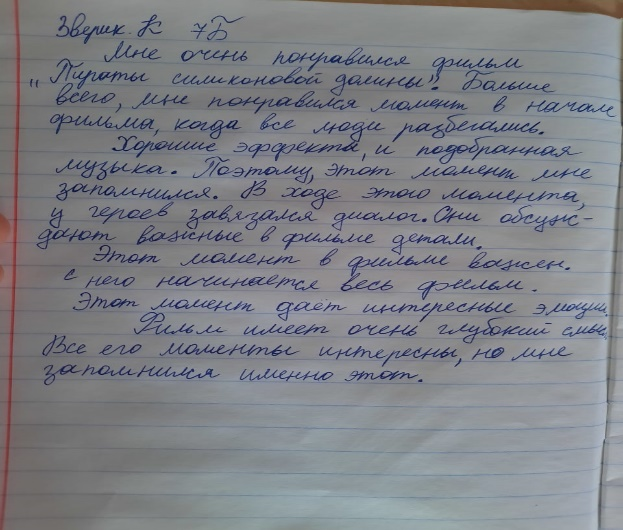 Зверик. К 7Б
Мне очень понравился фильм
„Пираты силиконовой долины". Больше
всего, мне понравился момент в начале
фильма, когда все люди разбегались.
Хорошие эффекта, и подобранная
музыка. Поэтому, этот момент мне
запомнился. В ходе этого момента,
у героев завязался диалог. Они обсуж-
дают важные в фильме детали.
Этот момент в фильме важен.
с него начинается весь фильм.
Этот момент даёт интересные эмоции.
Фильм имеет очень глубокий смысл.
Все его моменты интересны, но мне
запомнился именно этот.